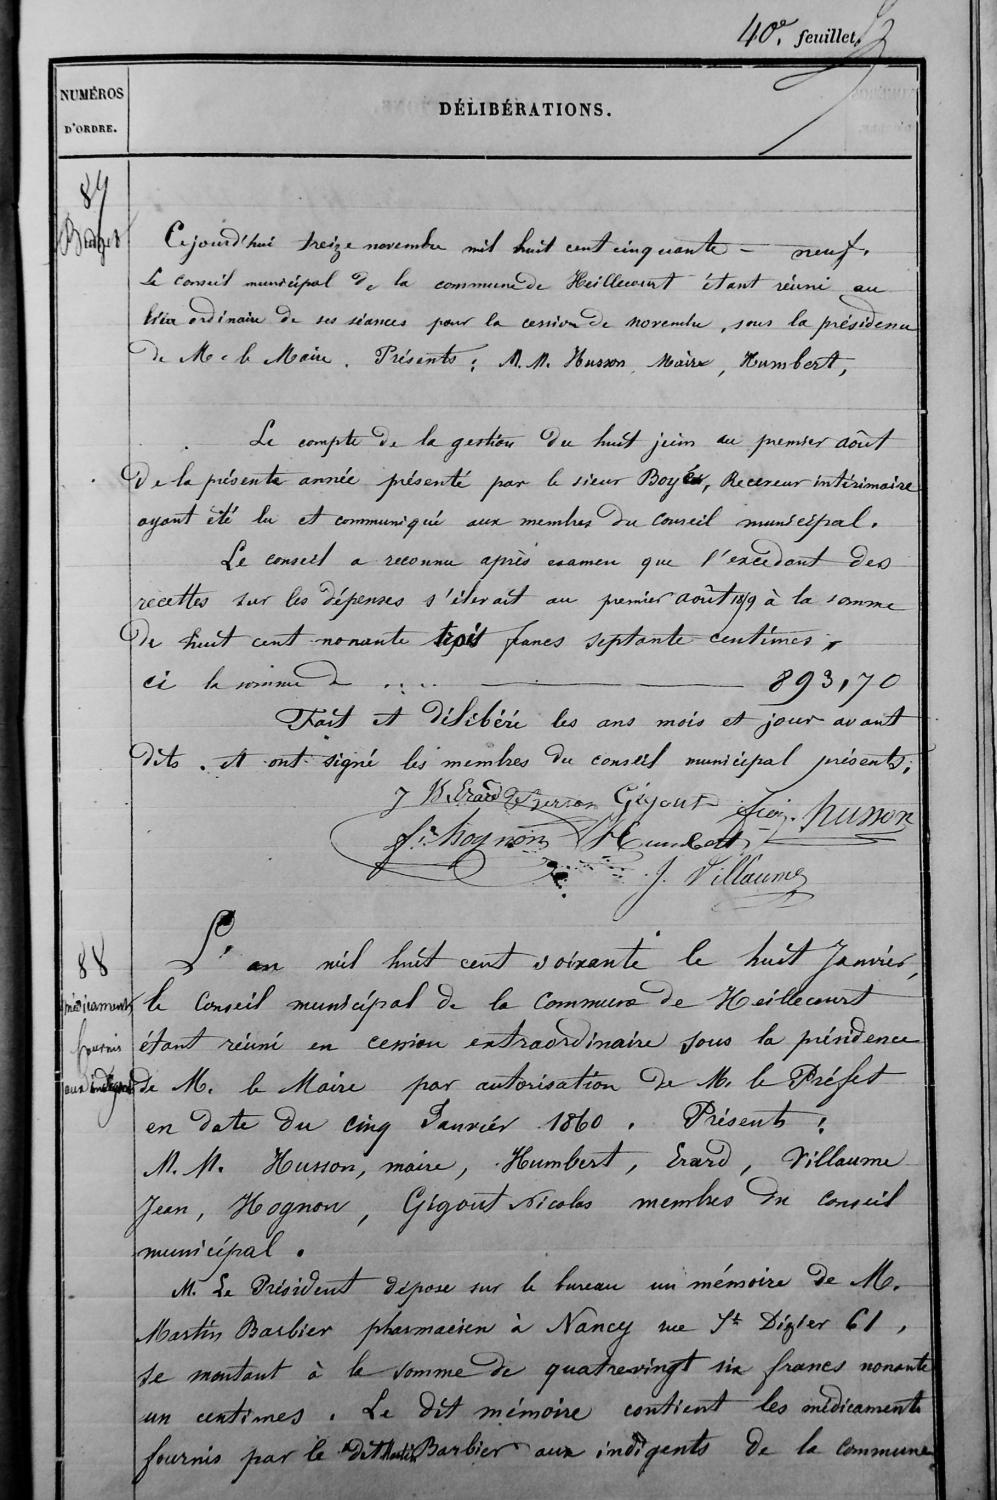 40e. feuillet.
NUMÉROS
D'ORDRE.
DÉLIBÉRATIONS.
87
Cejourd'hui treize novembre mil huit cent cinquante – neuf.
Le conseil municipal de la commune de Heillecourt étant réuni au
lieu ordinaire de ses séances pour la cession de novembre, sous la présidence
de M. le Maire. Présents : M.M. Husson, Maire, Humbert,
Le compte de la gestion du huit juin au premier août
de la présente année présenté par le sieur Boyer, Receveur intérimaire
ayant été lu et communiqué aux membres du conseil municipal.
Le conseil a reconnu après examen que l'excédant des
recettes sur les dépenses s'élevait au premier août 1859 à la somme
de huit cent nonante trois francs septante centimes,
ci la somme de .... 893,70
Fait et délibéré les ans mois et jour avant
dits. et ont signé les membres du conseil municipal présents.
J B Erard Gigout husson
fs hognon Humbert
J. Villaume
88
médicaments
fournis
aux indigents
L'an mil huit cent soixante le huit Janvier,
le Conseil municipal de la Commune de Heillecourt
étant réuni en cession extraordinaire sous la présidence
de M. le Maire par autorisation de M. le Préfet
en date du cinq Janvier 1860. Présents :
M.M. Husson, maire, Humbert, Erard, Villaume
Jean, Hognon, Gigout Nicolas membres du conseil
municipal.
M. Le Président dépose sur le bureau un mémoire de M.
Martin Barbier pharmacien à Nancy rue St Dizier 61,
se montant à la somme de quatrevingt six francs nonante
un centimes. Le dit mémoire contient les médicaments
fournis par le dit Martin Barbier aux indigents de la commune